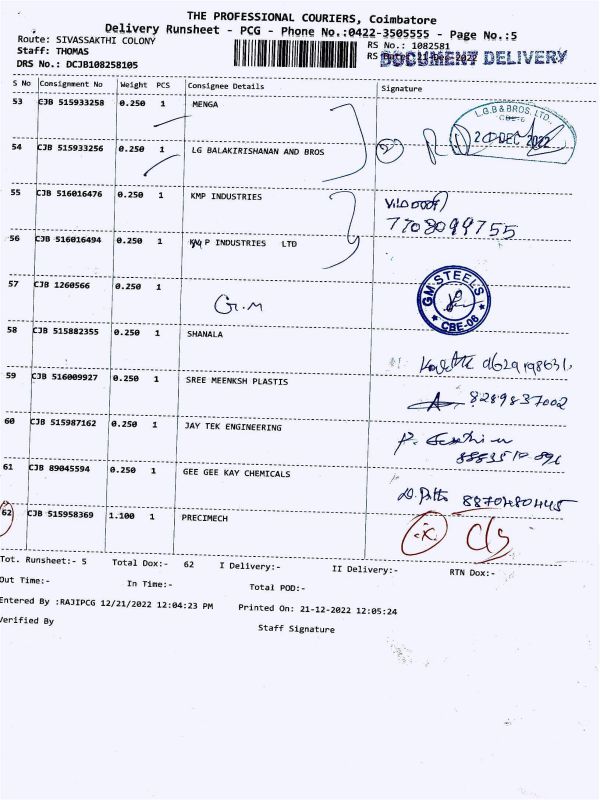 THE PROFESSIONAL COURIERS, Coimbatore
Delivery Runsheet - PCG - Phone No.:0422-3505555 - Page No.:5
Route: SIVASSAKTHI COLONY
RS No.: 1082581
Staff: THOMAS
RS Date: 21-Dec-2022
DOCUMENT DELIVERY
DRS No.: DCJB108258105
S No Consignment No Weight PCS Consignee Details Signature
53 CJB 515933258 0.250 1 MENGA
L.G.B & BROS. LTD.,
CBE-6
20 DEC 2022
54 CJB 515933256 0.250 1 LG BALAKIRISHANAN AND BROS
55 CJB 516016476 0.250 1 KMP INDUSTRIES
7708099755
56 CJB 516016494 0.250 1 P INDUSTRIES LTD
57 CJB 1260566 0.250 1 G.M
GM STEELS
CBE-06
58 CJB 515882355 0.250 1 SHANALA
9629198631
59 CJB 516009927 0.250 1 SREE MEENKSH PLASTIS
8289837002
60 CJB 515987162 0.250 1 JAY TEK ENGINEERING
61 CJB 89045594 0.250 1 GEE GEE KAY CHEMICALS
8870480445
62 CJB 515958369 1.100 1 PRECIMECH
Tot. Runsheet:- 5 Total Dox:- 62 I Delivery:- II Delivery:- RTN Dox:-
Out Time:- In Time:- Total POD:-
Entered By :RAJIPCG 12/21/2022 12:04:23 PM Printed On: 21-12-2022 12:05:24
Verified By Staff Signature